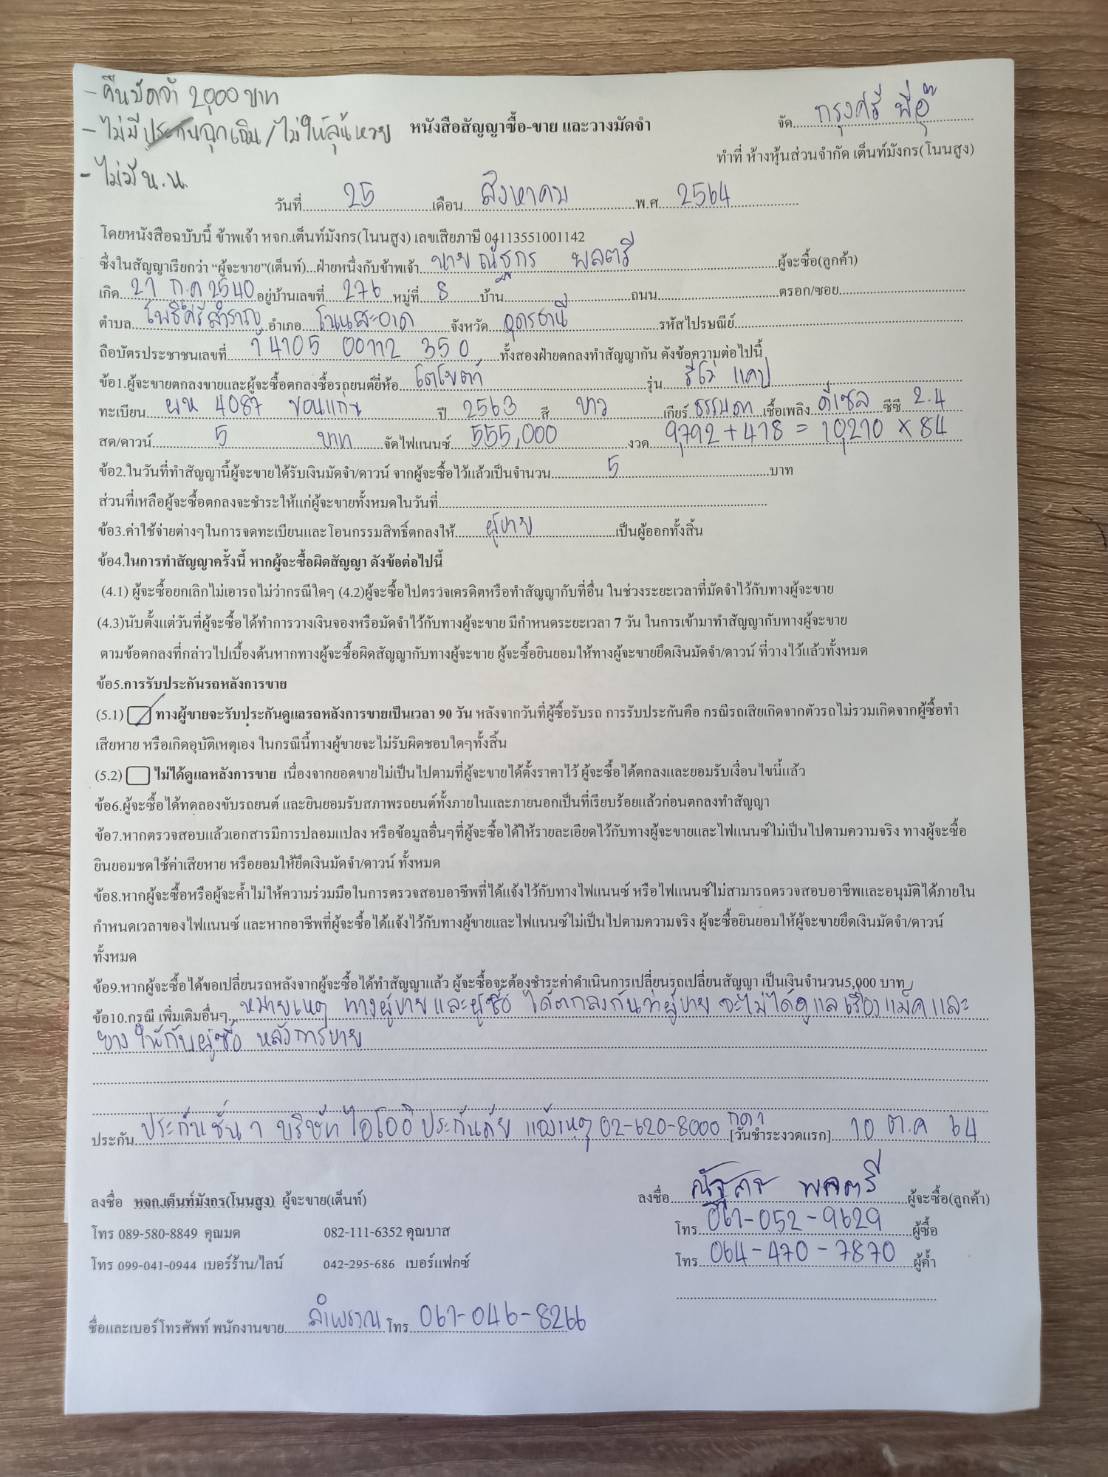 - คืนมัดจำ 2,000 บาท
- ไม่มีประกันฉุกเฉิน/ไม่ให้ลุ้นหวย
- ไม่มี น.น.
หนังสือสัญญาซื้อ-ขาย และวางมัดจำ
จัด กรุงศรี พี่อู๊
ทำที่ ห้างหุ้นส่วนจำกัด เต็นท์มังกร(โนนสูง)
วันที่ 25 เดือน สิงหาคม พ.ศ. 2564
โดยหนังสือฉบับนี้ ข้าพเจ้า หจก.เต็นท์มังกร(โนนสูง) เลขเสียภาษี 04113551001142
ซึ่งในสัญญาเรียกว่า "ผู้จะขาย"(เต็นท์)...ฝ่ายหนึ่งกับข้าพเจ้า นาย ณัฐกร พลตรี ผู้จะซื้อ(ลูกค้า)
เกิด 27 ก.ค 2540 อยู่บ้านเลขที่ 276 หมู่ที่ 8 บ้าน ถนน ตรอก/ซอย
ตำบล โพธิ์ศรีสำราญ อำเภอ โนนสะอาด จังหวัด อุดรธานี รหัสไปรษณีย์
ถือบัตรประชาชนเลขที่ 1 4105 00112 350 ทั้งสองฝ่ายตกลงทำสัญญากัน ดังข้อความต่อไปนี้
ข้อ1.ผู้จะขายตกลงขายและผู้จะซื้อตกลงซื้อรถยนต์ยี่ห้อ โตโยต้า รุ่น รีโว่ แคป
ทะเบียน ผห 4087 ขอนแก่น ปี 2563 สี ขาว เกียร์ ธรรมดา เชื้อเพลิง ดีเซล ซีซี 2.4
สด/ดาวน์ 5 บาท จัดไฟแนนซ์ 555,000 งวด 9,792 + 418 = 10,210 × 84
ข้อ2.ในวันที่ทำสัญญานี้ผู้จะขายได้รับเงินมัดจำ/ดาวน์ จากผู้จะซื้อไว้แล้วเป็นจำนวน 5 บาท
ส่วนที่เหลือผู้จะซื้อตกลงจะชำระให้แก่ผู้จะขายทั้งหมดในวันที่
ข้อ3.ค่าใช้จ่ายต่างๆในการจดทะเบียนและโอนกรรมสิทธิ์ตกลงให้ ผู้ขาย เป็นผู้ออกทั้งสิ้น
ข้อ4.ในการทำสัญญาครั้งนี้ หากผู้จะซื้อผิดสัญญา ดังข้อต่อไปนี้
(4.1) ผู้จะซื้อยกเลิกไม่เอารถไม่ว่ากรณีใดๆ (4.2)ผู้จะซื้อไปตรวจเครดิตหรือทำสัญญากับที่อื่น ในช่วงระยะเวลาที่มัดจำไว้กับทางผู้จะขาย
(4.3)นับตั้งแต่วันที่ผู้จะซื้อได้ทำการวางเงินจองหรือมัดจำไว้กับทางผู้จะขาย มีกำหนดระยะเวลา 7 วัน ในการเข้ามาทำสัญญากับทางผู้จะขาย
ตามข้อตกลงที่กล่าวไปเบื้องต้นหากทางผู้จะซื้อผิดสัญญากับทางผู้จะขาย ผู้จะซื้อยินยอมให้ทางผู้จะขายยึดเงินมัดจำ/ดาวน์ ที่วางไว้แล้วทั้งหมด
ข้อ5.การรับประกันรถหลังการขาย
(5.1) ทางผู้ขายจะรับประกันดูแลรถหลังการขายเป็นเวลา 90 วัน หลังจากวันที่ผู้ซื้อรับรถ การรับประกันคือ กรณีรถเสียเกิดจากตัวรถไม่รวมเกิดจากผู้ซื้อทำ
เสียหาย หรือเกิดอุบัติเหตุเอง ในกรณีนี้ทางผู้ขายจะไม่รับผิดชอบใดๆทั้งสิ้น
(5.2) ไม่ได้ดูแลหลังการขาย เนื่องจากยอดขายไม่เป็นไปตามที่ผู้จะขายได้ตั้งราคาไว้ ผู้จะซื้อได้ตกลงและยอมรับเงื่อนไขนี้แล้ว
ข้อ6.ผู้จะซื้อได้ทดลองขับรถยนต์ และยินยอมรับสภาพรถยนต์ทั้งภายในและภายนอกเป็นที่เรียบร้อยแล้วก่อนตกลงทำสัญญา
ข้อ7.หากตรวจสอบแล้วเอกสารมีการปลอมแปลง หรือข้อมูลอื่นๆที่ผู้จะซื้อได้ให้รายละเอียดไว้กับทางผู้จะขายและไฟแนนซ์ไม่เป็นไปตามความจริง ทางผู้จะซื้อ
ยินยอมชดใช้ค่าเสียหาย หรือยอมให้ยึดเงินมัดจำ/ดาวน์ ทั้งหมด
ข้อ8.หากผู้จะซื้อหรือผู้จะค้ำไม่ให้ความร่วมมือในการตรวจสอบอาชีพที่ได้แจ้งไว้กับทางไฟแนนซ์ หรือไฟแนนซ์ไม่สามารถตรวจสอบอาชีพและอนุมัติได้ภายใน
กำหนดเวลาของไฟแนนซ์ และหากอาชีพที่ผู้จะซื้อได้แจ้งไว้กับทางผู้ขายและไฟแนนซ์ไม่เป็นไปตามความจริง ผู้จะซื้อยินยอมให้ผู้จะขายยึดเงินมัดจำ/ดาวน์
ทั้งหมด
ข้อ9.หากผู้จะซื้อได้ขอเปลี่ยนรถหลังจากผู้จะซื้อได้ทำสัญญาแล้ว ผู้จะซื้อจะต้องชำระค่าดำเนินการเปลี่ยนรถเปลี่ยนสัญญา เป็นเงินจำนวน5,000 บาท
ข้อ10.กรณี เพิ่มเติมอื่นๆ หมายเหตุ ทางผู้ขายและผู้ซื้อ ได้ตกลงกันว่าผู้ขาย จะไม่ได้ดูแล เรื่องแม็ค และ
ยาง ให้กับผู้ซื้อ หลังการขาย
ประกัน ประกันชั้น 1 บริษัท ไอโออิ ประกันภัย แจ้งเหตุ 02-620-8000 กด 1 [วันชำระงวดแรก] 10 ต.ค 64
ลงชื่อ หจก.เต็นท์มังกร(โนนสูง) ผู้จะขาย(เต็นท์)
ลงชื่อ ณัฐกร พลตรี ผู้จะซื้อ(ลูกค้า)
โทร 089-580-8849 คุณมด 082-111-6352 คุณบาส
โทร 061-052-9629 ผู้ซื้อ
โทร 099-041-0944 เบอร์ร้าน/ไลน์ 042-295-686 เบอร์แฟกซ์
โทร 064-470-7870 ผู้ค้ำ
ชื่อและเบอร์โทรศัพท์ พนักงานขาย ลำเพราณ โทร 061-046-8266